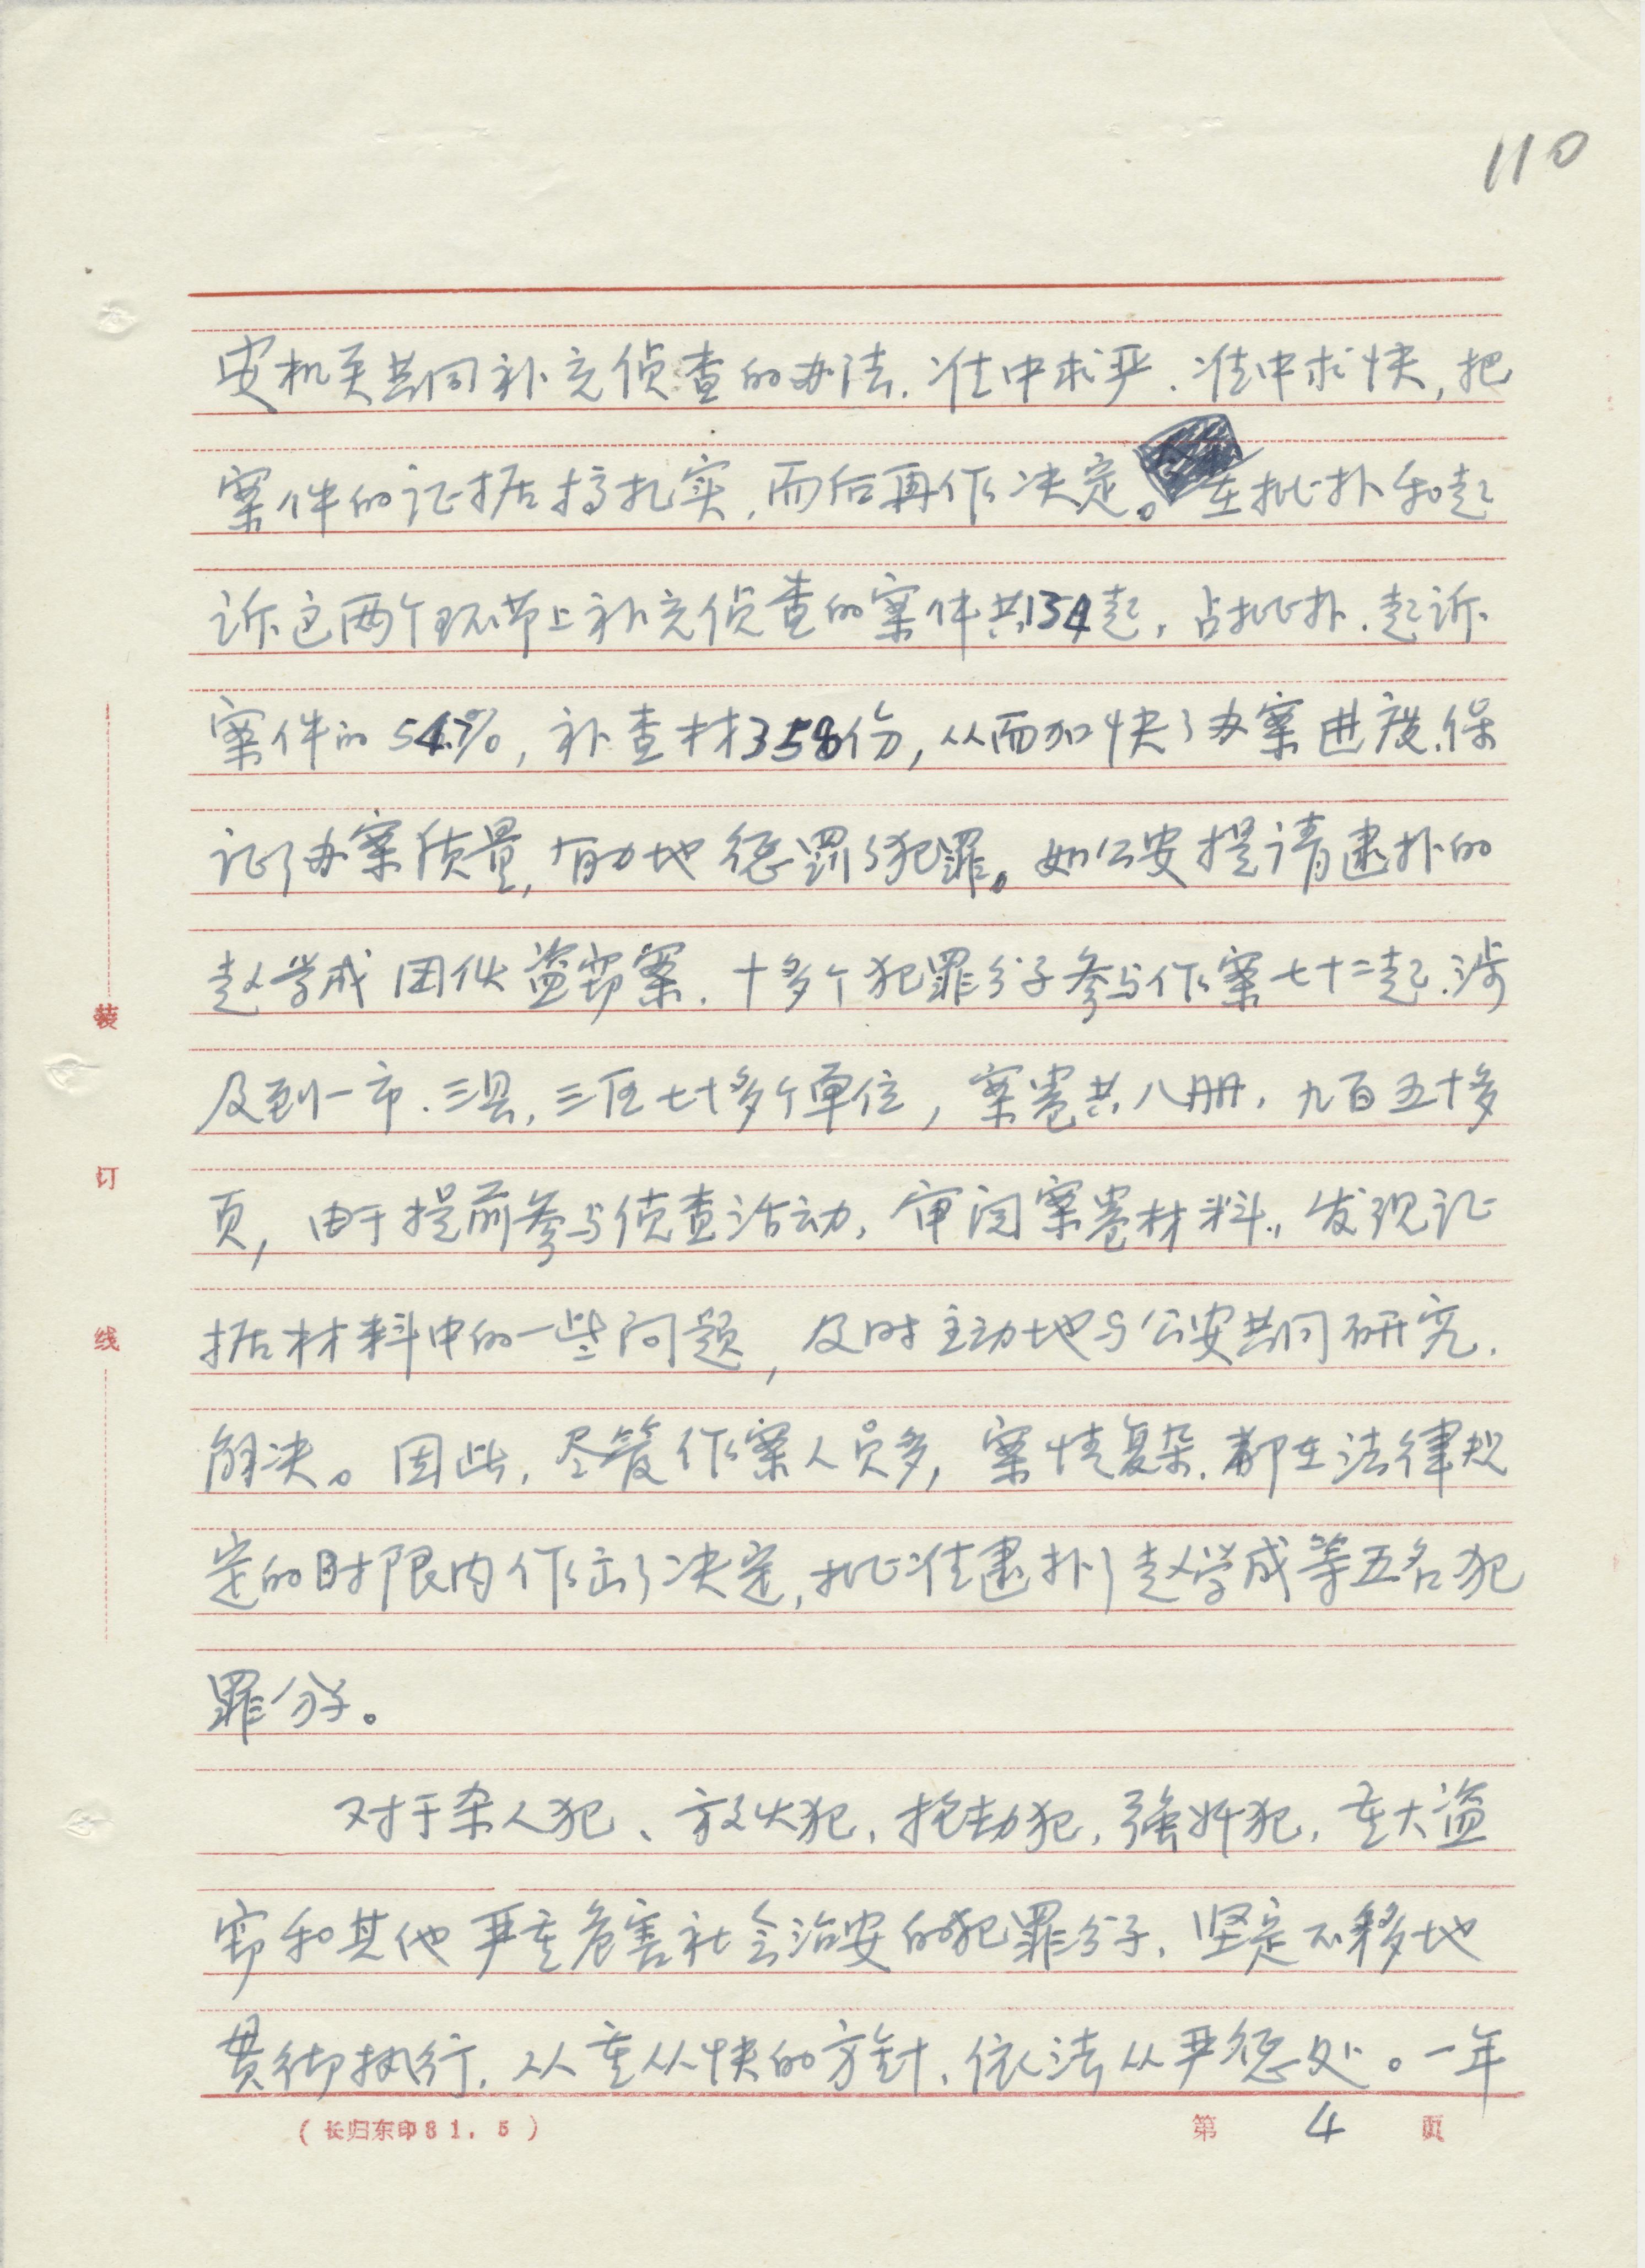 110
安机关共同补充侦查的办法.准中求严.准中求快,把
案件的证据搞扎实,而后再作决定。在批扑和起
诉这两个环节上补充侦查的案件共134起,占批扑.起诉
案件的54.7%,补查材358份,从而加快了办案进度.保
证了办案质量,有力地惩罚了犯罪。如公安提请逮扑的
赵学成团伙盗窃案.十多个犯罪分子参与作案七十二起.涉
及到一市.三县,三区七十多个单位,案卷共八册,九百五十多
页,由于提前参与侦查活动,审阅案卷材料,发现证
据材料中的一些问题,及时主动地与公安共同研究.
解决。因此,尽管作案人员多,案情复杂.都在法律规
定的时限内作出了决定,批准逮扑了赵学成等五名犯
罪分子。
对于杀人犯、放火犯,抢劫犯,强奸犯,重大盗
窃和其他严重危害社会治安的犯罪分子,坚定不移地
贯彻执行,从重从快的方针,依法从严惩处。一年
装
订
线
(长归东印81.5)
第 4 页